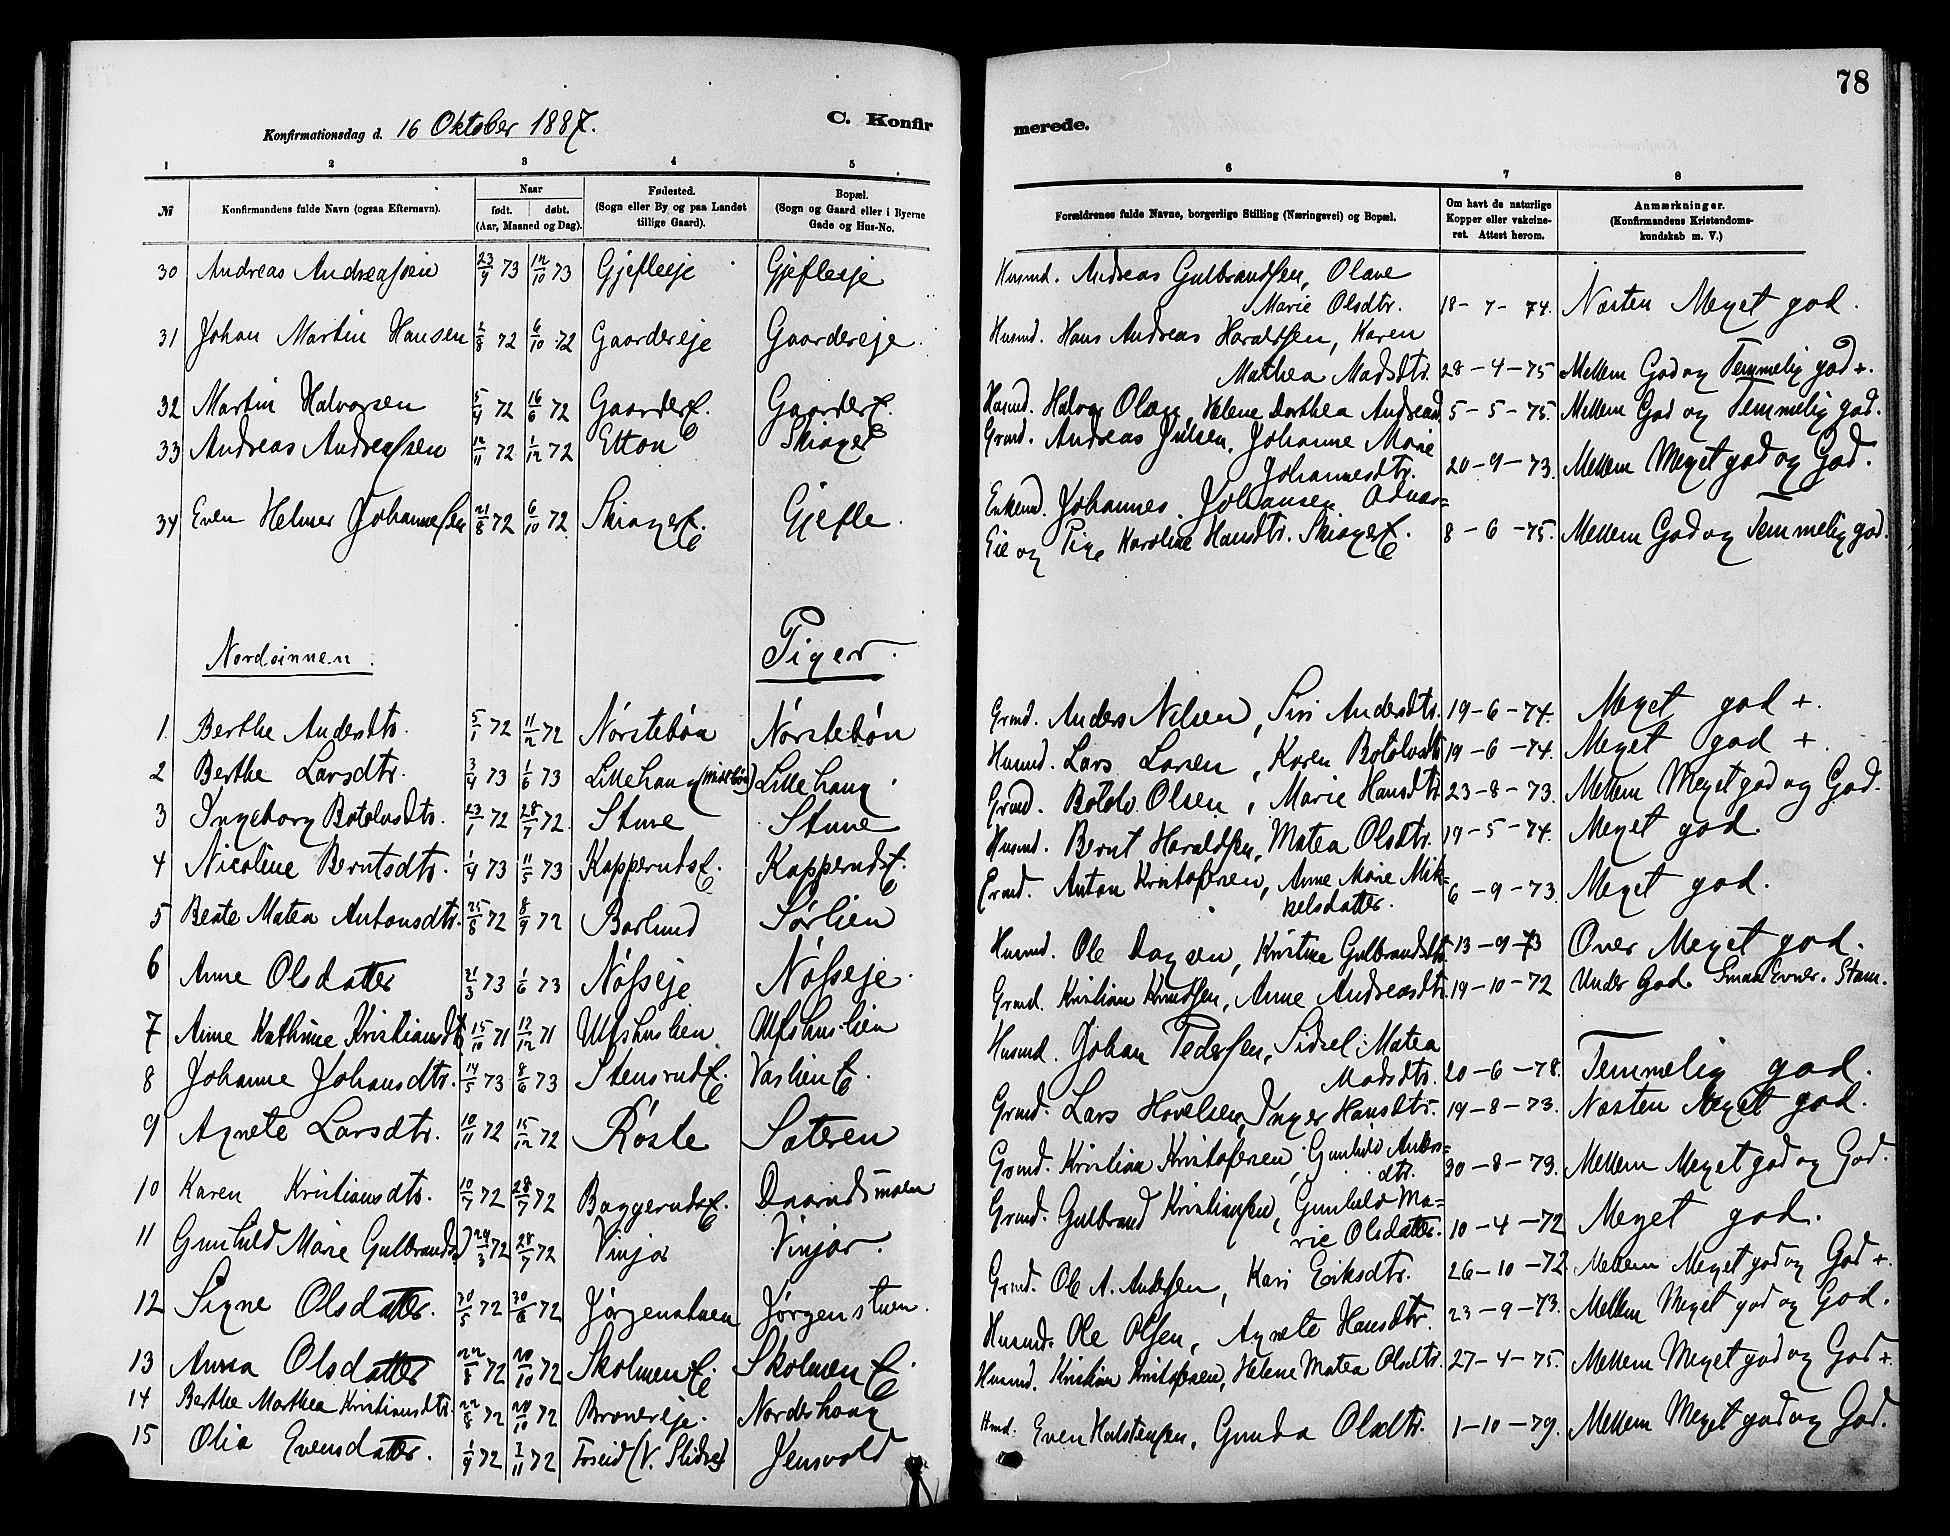 78
Konfirmationsdag d. 16 Oktober 1887.
C. Konfirmerede.
1 2 3 4 5 6 7 8
№
Konfirmandens fulde Navn (ogsaa Efternavn).
Naar
født. døbt.
(Aar, Maaned og Dag).
Fødested.
(Sogn eller By og paa Landet
tillige Gaard).
Bopæl.
(Sogn og Gaard eller i Byerne
Gade og Hus-No.
Forældrenes fulde Navne, borgerlige Stilling (Næringsvei) og Bopæl.
Om havt de naturlige
Kopper eller vakcine-
ret. Attest herom.
Anmærkninger.
(Konfirmandens Kristendoms-
kundskab m. V.)
30 Andreas Andreassen 23/9 73 12/10 73 Gjefleeje Gjefleeje Husmd. Andreas Gulbrandssen, Olave
Marie Olsdtr. 18-7-74. Næsten Meget god.
31 Johan Martin Hansen 2/8 72 6/10 72 Gaardereje Gaardereje. Husmd. Hans Andreas Haraldssen, Karen
Mathea Madsdtr. 28-4-75 Mellem God og Temmelig god +.
32 Martin Halvorsen 5/4 72 16/6 72 Gaarder E. Gaarder E. Husmd. Halvor Olsen, Helene Dorthea Andreasd. 5-5-75. Mellem God og Temmelig god.
33 Andreas Andreassen 12/11 72 1/12 72 Etton Skiager Grmd. Andreas Julsen, Johanne Marie
Johannesdtr. 20-9-73. Mellem Meget god og God.
34 Even Helmer Johannessen 21/8 72 6/10 72. Skiager E. Gjefle. Enkemd. Johannes Johansen
Eie og Pige Karoline Hansdtr. Skiager E. 8-6-75. Mellem God og Temmelig god.
Nordsinnen.
Piger.
1. Berthe Andersdtr. 5/1 72 11/2 72 Nörstebön Nörstebön Grmd. Anders Nilsen, Siri Andersdtr. 19-6-74. Meget god +.
2 Berthe Larsdtr. 3/4 73 1/6 73 Lillehaug Lillehaug. Husmd. Lars Larsen, Karen Botolvsdtr. 19-6-74. Meget god +.
3 Ingeborg Botolvsdtr. 23/1 72 28/7 72. Stune Stune Grmd. Botolv Olsen, Marie Hansdtr. 23-8-73. Mellem Meget god og God.
4 Nicoline Berntsdtr. 1/4 73 11/5 73 Kapperuds E. Kapperuds E. Husmd. Bernt Haraldssen, Matea Olsdtr. 19-5-74. Meget god.
5 Beate Matea Antonsdtr. 25/8 72 8/9 72 Barlund Sörlien Grmd. Anton Kristofersen, Anne Marie Mik-
kelsdatter. 6-9-73. Meget god.
6 Anne Olsdatter 21/3 73 1/6 73 Nösseje Nösseje. Husmd. Ole Dagsen, Kristine Gulbrandsdtr. 13-9-73 Over Meget god.
7 Anne Kathrine Kristiansdtr. 15/10 71 12/12 71 Ulfshuslien Ulfshuslien Grmd. Kristian Knudssen, Anne Andreasdtr. 19-10-72 Under God. Smaa Evner. Stam.
8 Johanne Johansdtr. 14/5 73 8/6 73 Stensrud E. Vaslien E. Husmd. Johan Pederssen, Sidsel Matea
Madsdtr. 20-6-78. Temmelig god.
9 Agnete Larsdtr. 10/11 72 15/12 72 Röste Sateren Grmd. Lars Hovelsen, Inger Hansdtr. 19-8-73. Næsten Meget god.
10 Karen Kristiansdtr. 10/7 72 28/7 72 Baggeruds E. Grmd. Kristian Kristofersen, Gunhild Anders-
dtr. 30-8-73. Mellem Meget god og God.
11 Gunhild Marie Gulbrandsd. 29/3 72 28/7 72 Vinjar Vinjar. Grmd. Gulbrand Kristianssen, Gunhild Ma-
rie Olsdatter. 10-4-72 Meget god.
12 Signe Olsdatter. 30/5 72 30/6 72 Jörgenstuen Jörgenstuen. Grmd. Ole A. Anderssen, Kari Eriksdtr. 26-10-72 Mellem Meget god og God +.
13 Anna Olsdatter 22/8 72 20/10 72 Skolmen E. Skolmen E. Husmd. Ole Olsen, Agnete Hansdtr. 23-9-73. Mellem Meget god og God.
14 Berthe Mathea Kristiansdtr. 22/8 72 20/10 72 Brænereje. Nordshaug Husmd. Kristian Kristofersen, Helene Matea Olsdtr. 27-4-75. Mellem Meget god og God +.
15 Olia Evensdatter. 1/9 72 3/11 72 Foseid (V. Slidre) Jensvold Hmd. Even Halstenssen, Gunda Olsdtr. 1-10-79. Mellem Meget god og God.